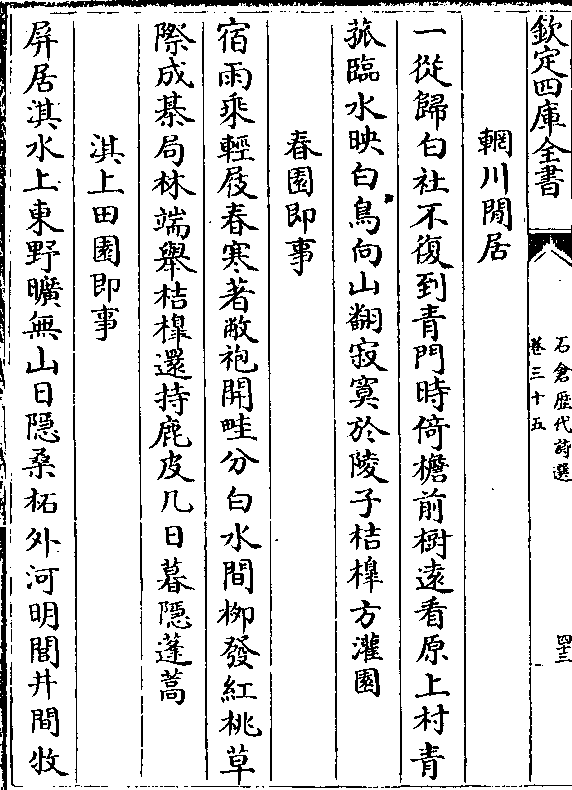 欽定四庫全書
石倉歴代詩選
卷三十五
四十三
輞川閒居
一從歸白社不復到青門時倚檐前樹遠看原上村青
菰臨水映白鳥向山翻寂寞於陵子桔橰方灌園
春園即事
宿雨乘輕屐春寒著敝袍開畦分白水間栁發紅桃草
際成棊局林端舉桔橰還持鹿皮几日暮隠蓬蒿
淇上田園即事
屏居淇水上東野曠無山日隠桑柘外河明閭井間牧